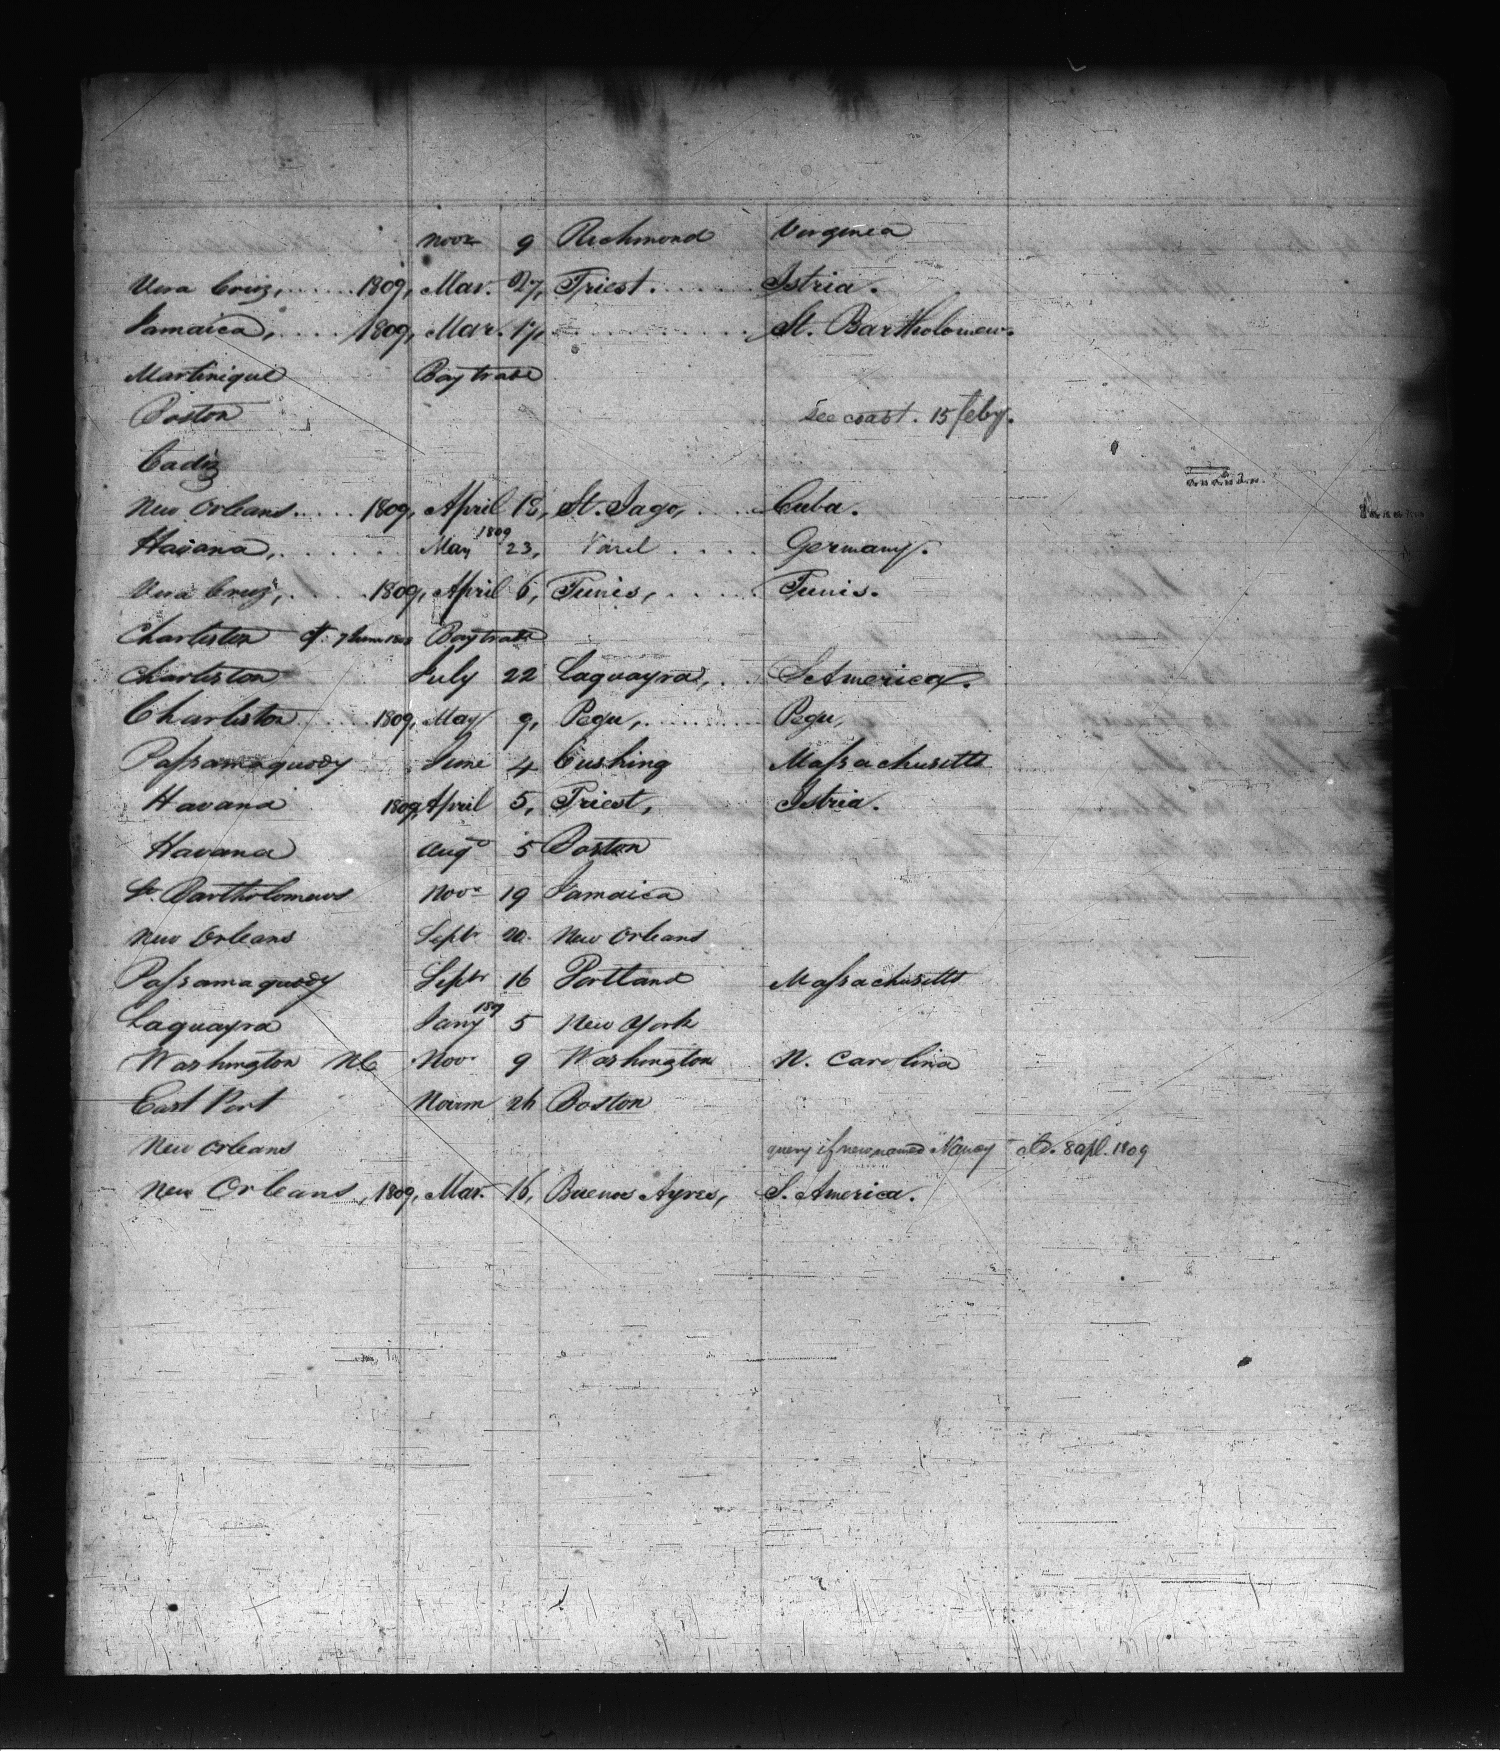 Novr 9 Richmond Virginea
Vera Cruz, ...... 1809, Mar. 27, Triest. ...... Istria.
Jamaica, .... 1809, Mar. 17, .......... St. Bartholomew.
Martinique Bay trade
Boston See coast. 15 feby.
Cadiz
New Orleans .... 1809, April 18, St. Jago, .... Cuba.
Havana, ...... May 1809 23, Varel .... Germany.
Vera Cruz, .... 1809, April 6, Tunis, .... Tunis.
Charleston Bay trade
Charleston July 22 Laguayra, .. S. America.
Charleston .... 1809, May 9, Pegu, ....... Pegu,
Passamaquody June 4 Cushing Massachusetts
Havana 1809, April 5, Triest, Istria.
Havana Augo 5 Boston
St. Bartholomews Novr 19 Jamaica
New Orleans Septr 20 New Orleans
Passamaquody Septr 16 Portland Massachusetts
Laguayra Jany 1809 5 New York
Washington NC Nov. 9 Washington N. Carolina
East Port Novem 26 Boston
New Orleans query if new named Nancy cld. 8 apl. 1809
New Orleans, 1809, Mar. 16, Buenos Ayres, S. America.